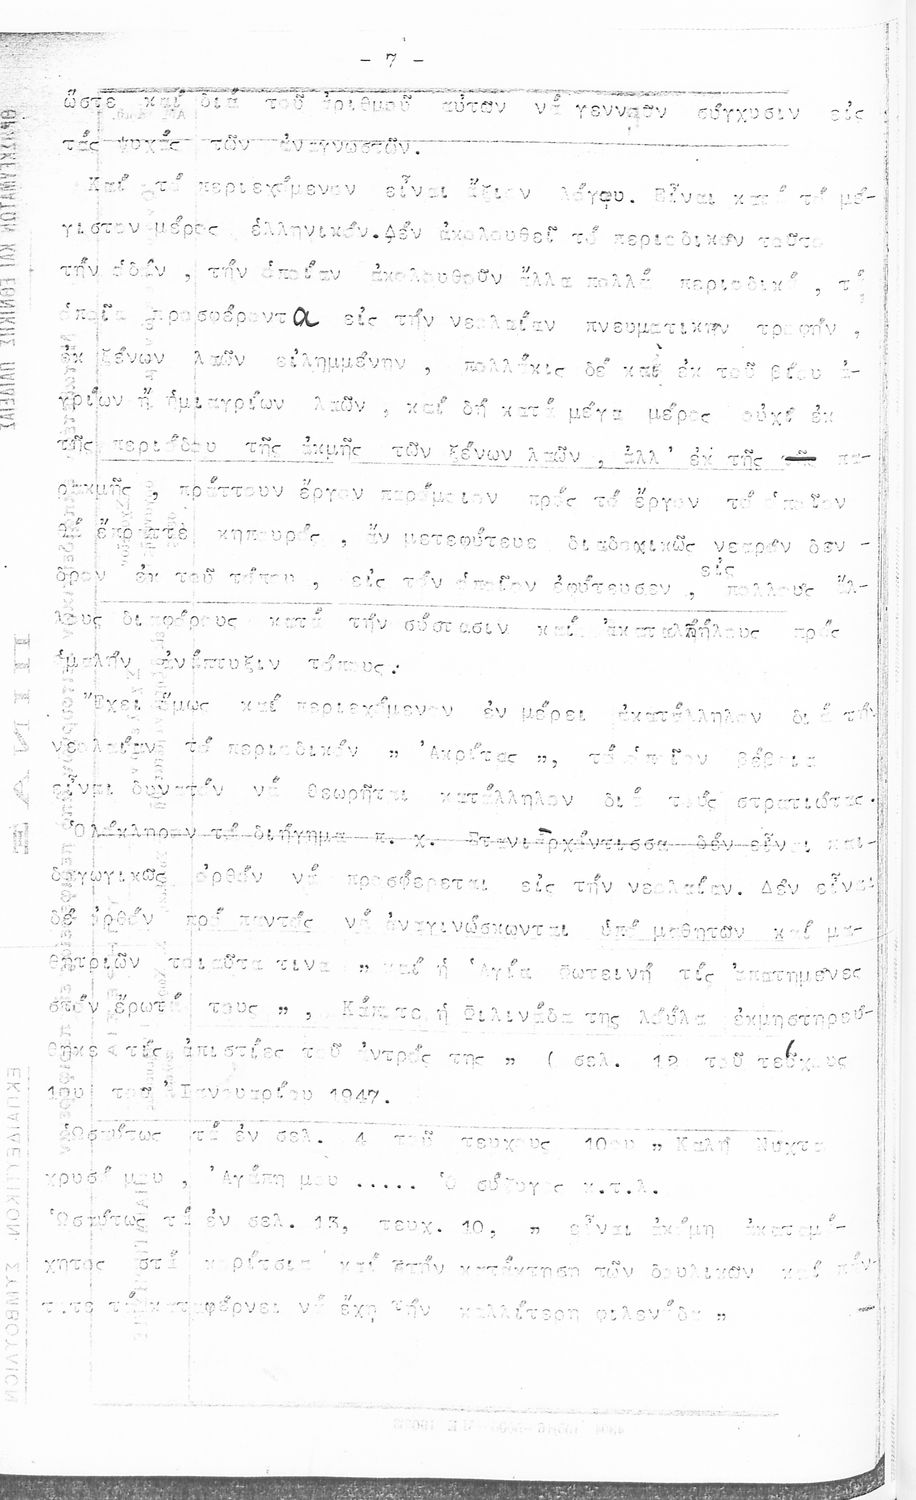 - 7 -
ὥστε καί διά τοῦ ἀριθμοῦ αὐτῶν νά γεννοῦν σύγχυσιν εἰς
τάς ψυχάς τῶν ἀναγνωστῶν.
Καί τό περιεχόμενον εἶναι ἄξιον λόγου. Εἶναι κατά τό μέ-
γιστον μέρος ἑλληνικόν. Δέν ἀκολουθεῖ τό περιοδικόν τοῦτο
τήν ὁδόν , τήν ὁποίαν ἀκολουθοῦν ἄλλα πολλά περιοδικά , τά
ὁποῖα προσφέροντα εἰς τήν νεολαίαν πνευματικήν τροφήν ,
ἐκ ξένων λαῶν εἰλημμένην , πολλάκις δέ καί ἐκ τοῦ βίου ἀ-
γρίων ἤ ἡμιαγρίων λαῶν , καί δή κατά μέγα μέρος οὐχί ἐκ
τῆς περιόδου τῆς ἀκμῆς τῶν ξένων λαῶν , ἀλλ' ἐκ τῆς πα-
ρακμῆς , πράττουν ἔργον παρόμοιον πρός τό ἔργον τό ὁποῖον
θά ἔπραττε κηπουρός , ἄν μετεφύτευε διαδοχικῶς νεαρόν δεν -
δρον ἐκ τοῦ τόπου , εἰς τόν ὁποῖον ἐφύτευσεν , εἰς πολλούς ἄλ-
λους διαφόρους κατά τήν σύστασιν καί ἀκαταλλήλους πρός
ὁμαλήν ἀνάπτυξιν τόπους.
Ἔχει ὅμως καί περιεχόμενον ἐν μέρει ἀκατάλληλον διά τήν
νεολαίαν τό περιοδικόν " Ἀκρίτας ", τό ὁποῖον βέβαια
εἶναι δυνατόν νά θεωρῆται κατάλληλον διά τούς στρατιώτας.
Ὁλόκληρον τό διήγημα π. χ. Στανιαρχόντισσα δέν εἶναι παι-
δαγωγικῶς ὀρθόν νά προσφέρεται εἰς τήν νεολαίαν. Δέν εἶναι
δέ ὀρθόν πρό παντός νά ἀναγινώσκωνται ὑπό μαθητῶν καί μα-
θητριῶν τοιαῦτα τινα " καί ἡ Ἁγία Φωτεινή τίς ἀπατημένες
στόν ἔρωτά τους " , Κάποτε ἡ Φιλινάδα της Λούλα ἐκμηστηρεύ-
θηκε τίς ἀπιστίες τοῦ ἄντρός της " ( σελ. 12 τοῦ τεύχους
1ου τοῦ Ἰανουαρίου 1947.
Ὡσαύτως τά ἐν σελ. 4 τοῦ τεύχους 10ου " Καλή Νύχτα
χρυσό μου , Ἀγάπη μου ..... Ὁ σύζυγος κ.τ.λ.
Ὡσαύτως τά ἐν σελ. 13, τευχ. 10, " εἶναι ἀκόμη ἀκαταμά-
χητος στά κορίτσια καί στήν κατάκτηση τῶν δουλικῶν καί πάν-
τοτε τά καταφέρνει νά ἔχη τήν καλλίτερη φιλενάδα "